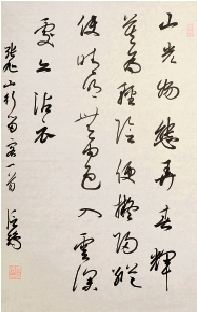 山光物態弄春輝
莫為輕陰便擬歸縱
使晴明無雨色入雲深
處亦沾衣
張旭山行留客一首